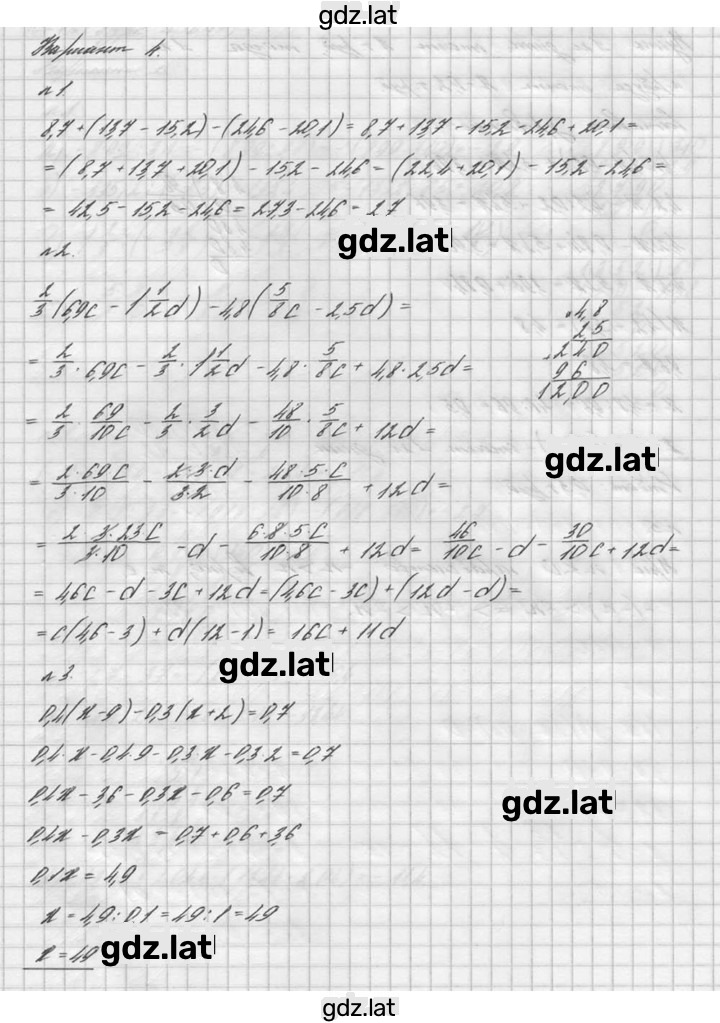 gdz.lat
Вариант 4.
№1.
8,7+(13,7-15,2)-(24,6-20,1)=8,7+13,7-15,2-24,6+20,1=
=(8,7+13,7+20,1)-15,2-24,6=(22,4+20,1)-15,2-24,6=
=42,5-15,2-24,6=27,3-24,6=2,7
gdz.lat
№2.
2/3(6,9c-1 1/2d)-4,8(5/8c-2,5d)=
=2/3·6,9c-2/3·1 1/2d-4,8·5/8c+4,8·2,5d=
×4,8
2,5
+240
96
12,00
=2/3·69/10c-2/3·3/2d-48/10·5/8c+12d=
gdz.lat
=2·69c/3·10-2·3·d/3·2-48·5·c/10·8+12d=
=2·3·23c/3·10-d-6·8·5c/10·8+12d=46/10c-d-30/10c+12d=
=4,6c-d-3c+12d=(4,6c-3c)+(12d-d)=
=c(4,6-3)+d(12-1)=1,6c+11d
gdz.lat
№3.
0,4(x-9)-0,3(x+2)=0,7
0,4·x-0,4·9-0,3·x-0,3·2=0,7
0,4x-3,6-0,3x-0,6=0,7
gdz.lat
0,4x-0,3x=0,7+0,6+3,6
0,1x=4,9
x=4,9:0,1=49:1=49
x=49
gdz.lat
gdz.lat